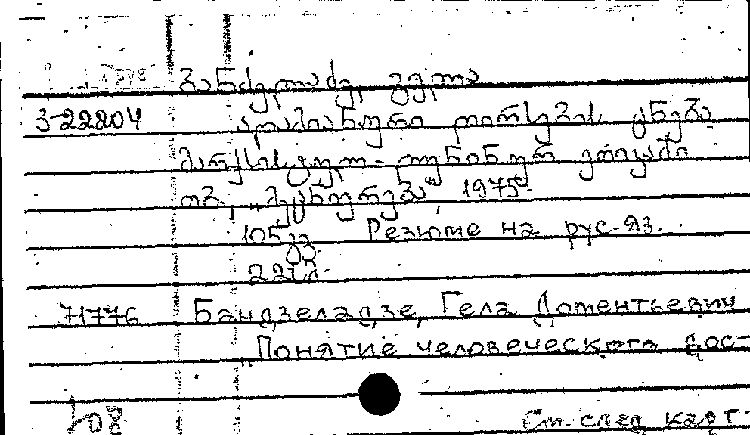 ბანძელაძე, გელა
3-22204
ადამიანური ღირსების ცნება
მარქსისტულ-ლენინურ ეთიკაში
თბ., „მეცნიერება“, 1975.
105 გვ. Резюме на рус. яз.
71776 Бандзеладзе, Гела Дотентьевич
„Понятие человеческого дос-
См. след. карт.